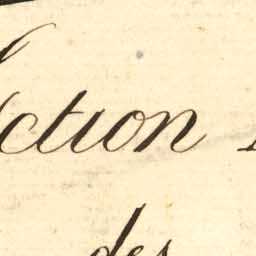 ction
des